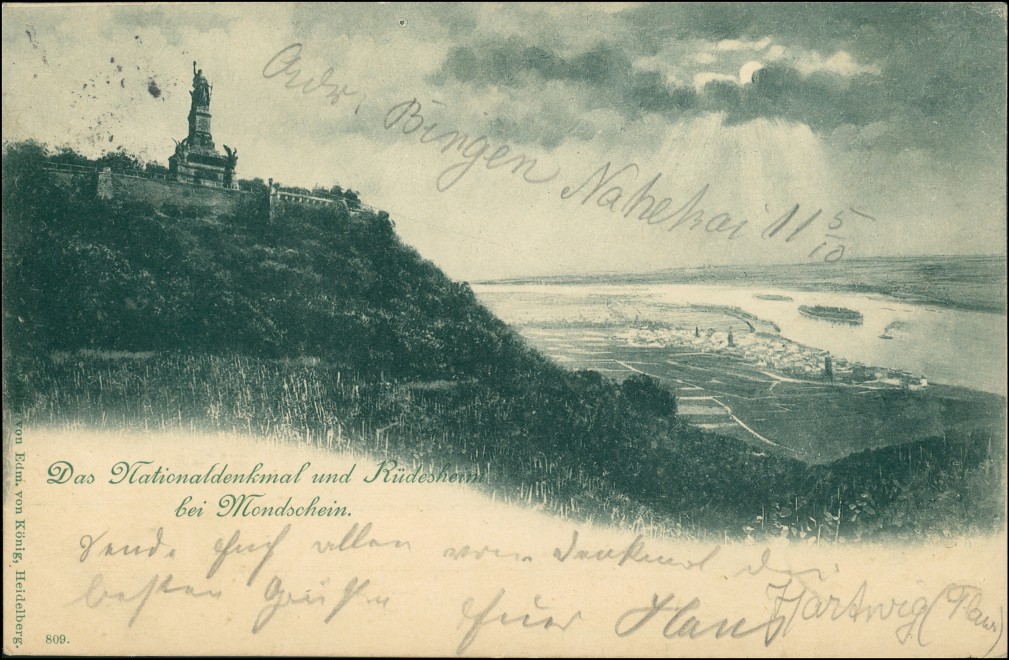 Adr. Bingen Nahekai 11 5/10
Das Nationaldenkmal und Rüdesheim
bei Mondschein.
Sende Euch allen vom Denkmal die
besten Grüße Euer Hans Hartwig
von Edm. von König, Heidelberg.
809.